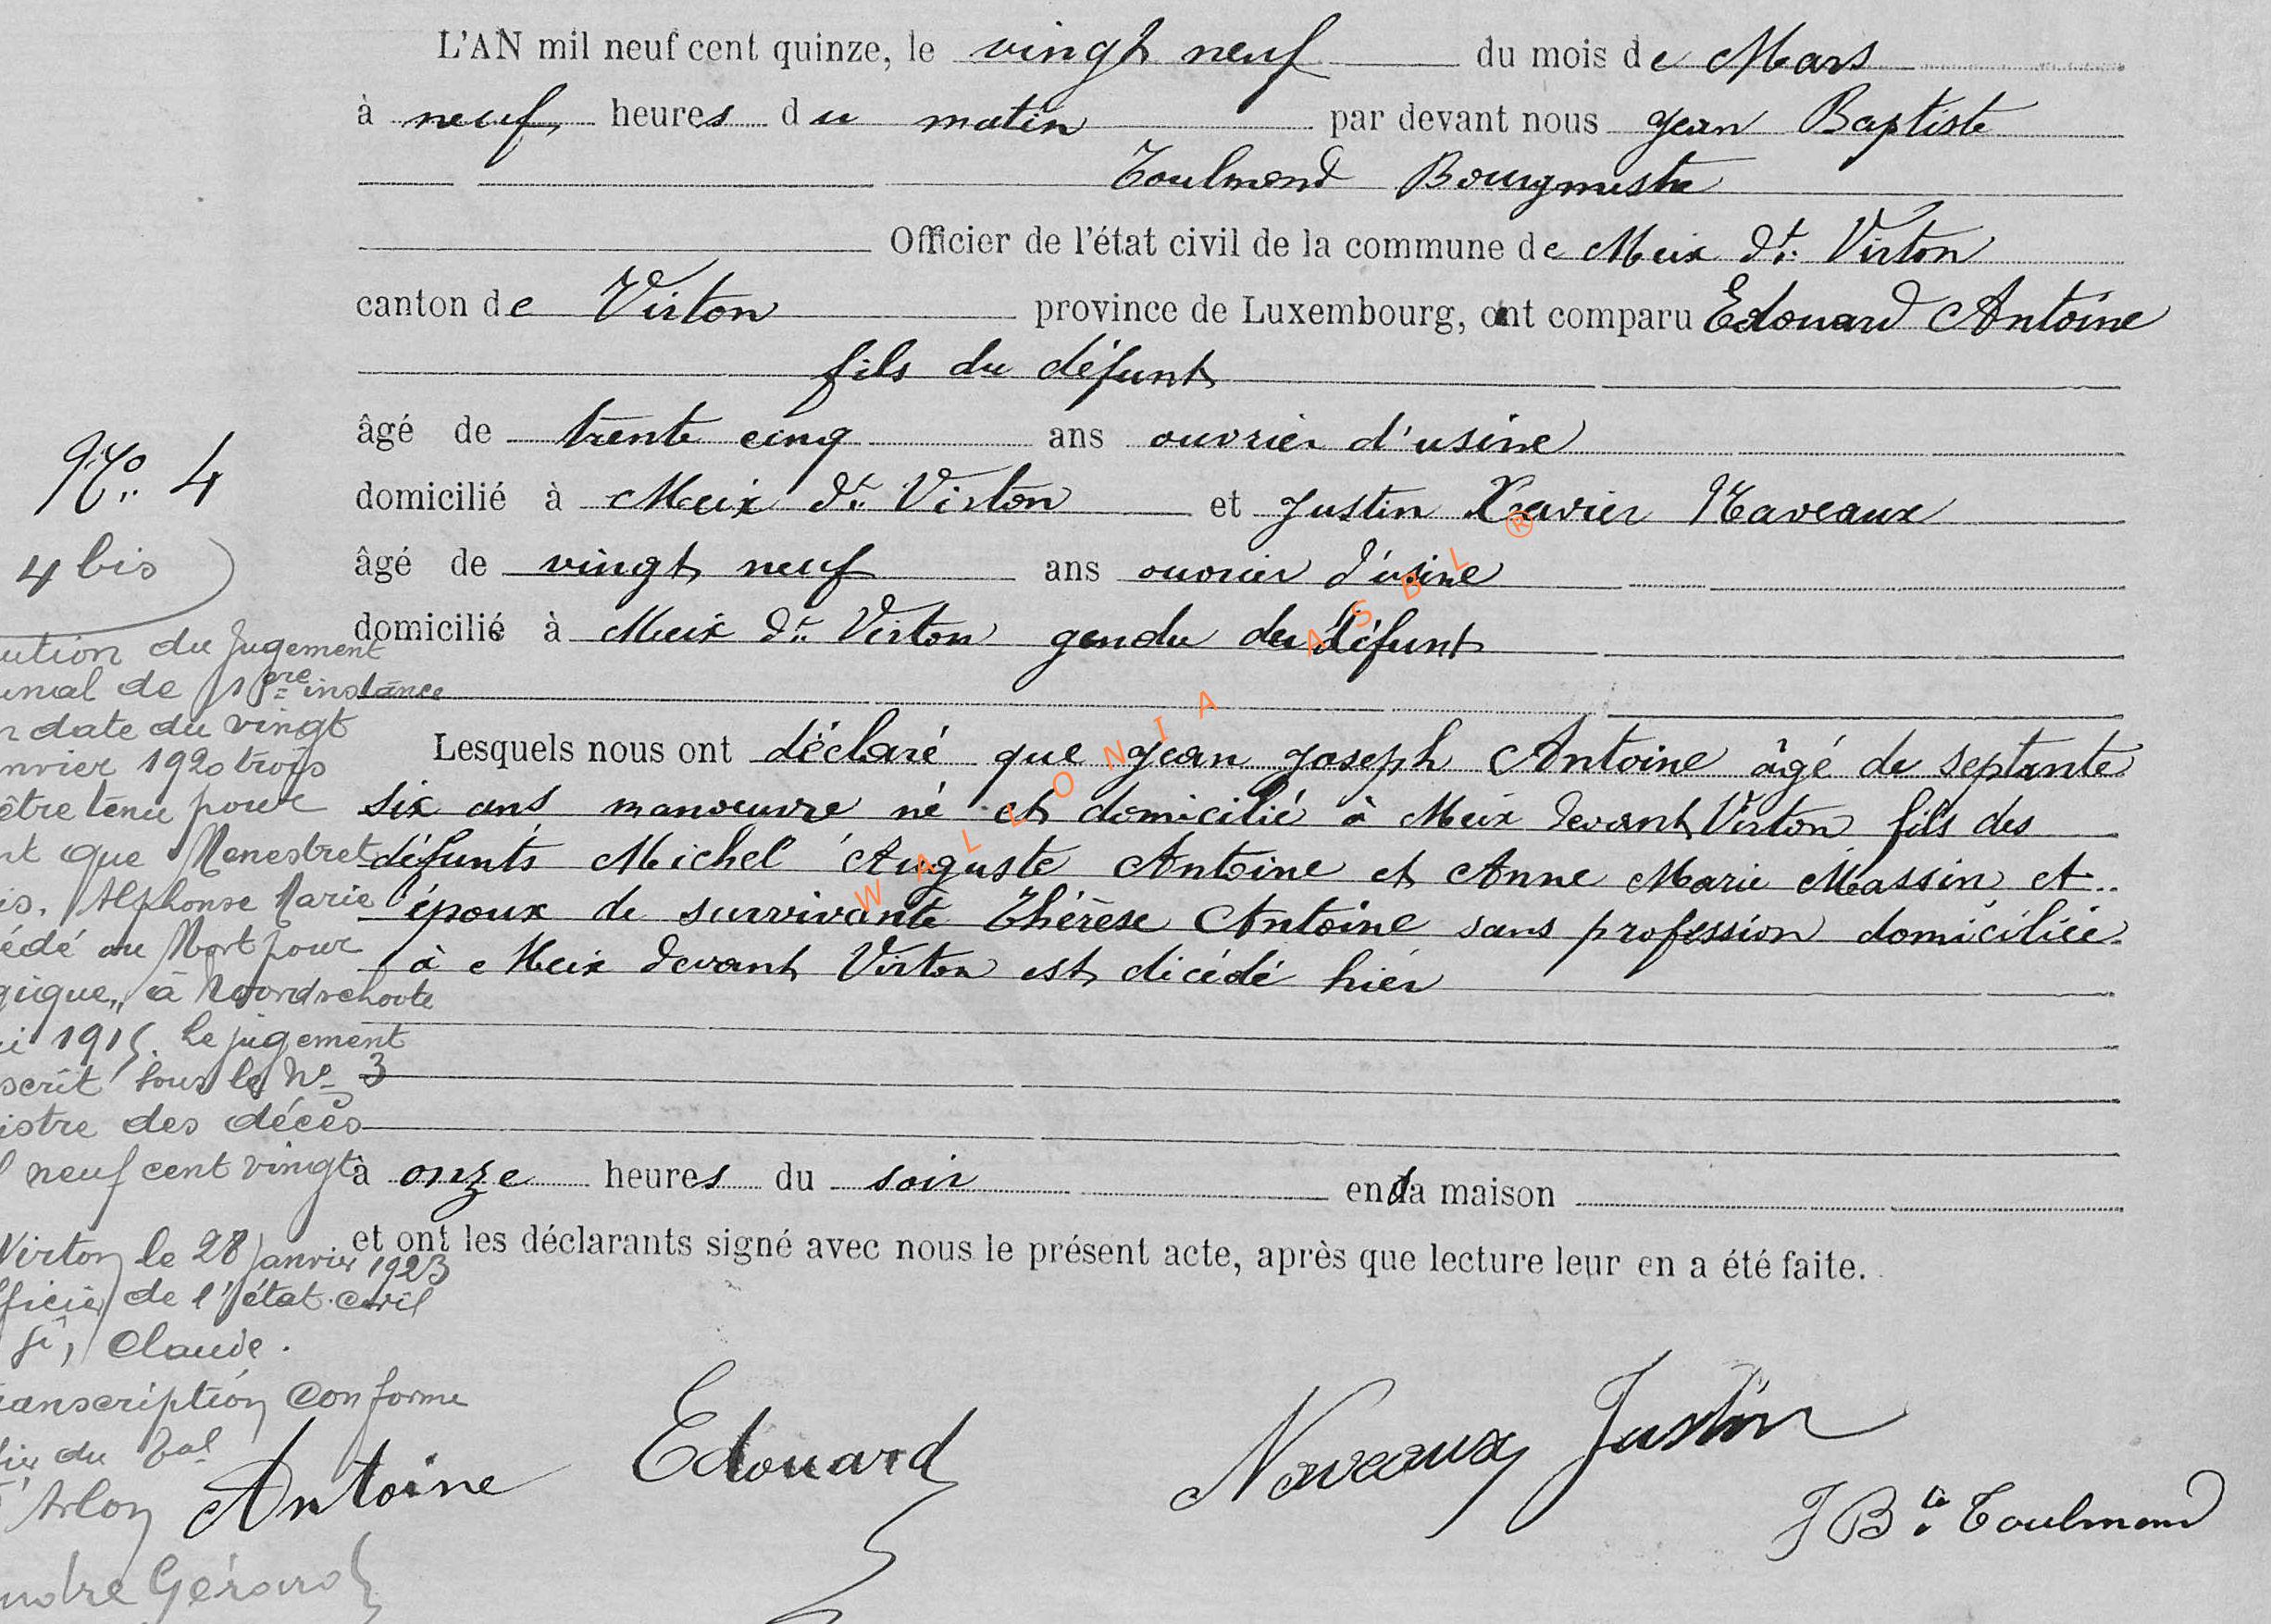 L'AN mil neuf cent quinze, le vingt neuf du mois de Mars
à neuf heures du matin par devant nous Jean Baptiste
Toulmond Bourgmestre
Officier de l'état civil de la commune de Meix dt. Virton
canton de Virton province de Luxembourg, ont comparu Edouard Antoine
fils du défunt
âgé de trente cinq ans ouvrier d'usine
domicilié à Meix dt. Virton et Justin Xavier Naveaux
âgé de vingt neuf ans ouvrier d'usine
domicilié à Meix dt. Virton gendre du défunt
Lesquels nous ont déclaré que Jean Joseph Antoine âgé de septante
six ans manoeuvre né et domicilié à Meix devant Virton fils des
défunts Michel Auguste Antoine et Anne Marie Massin et
époux de survivante Thérèse Antoine sans profession domiciliée
à Meix devant Virton est décédé hier
à onze heures du soir en sa maison
et ont les déclarants signé avec nous le présent acte, après que lecture leur en a été faite.
Antoine Edouard
Naveaux Justin
J Bte Toulmond
No. 4
4 bis
ution du Jugement
unal de 1ère instance
n date du vingt
nvier 1920 trois
être tenu pour
nt que Menestret
is, Alphonse Marie
édé au Mort pour
gique,, à Noordschoote
i 1915. Le jugement
scrit sous le No 3
istre des décès
l neuf cent vingt
Virton le 28 Janvier 1923
fficier de l'état civil
Claude.
ranscription conforme
du Tal
Arlon
Gérard
WALLONIA ASBL ®